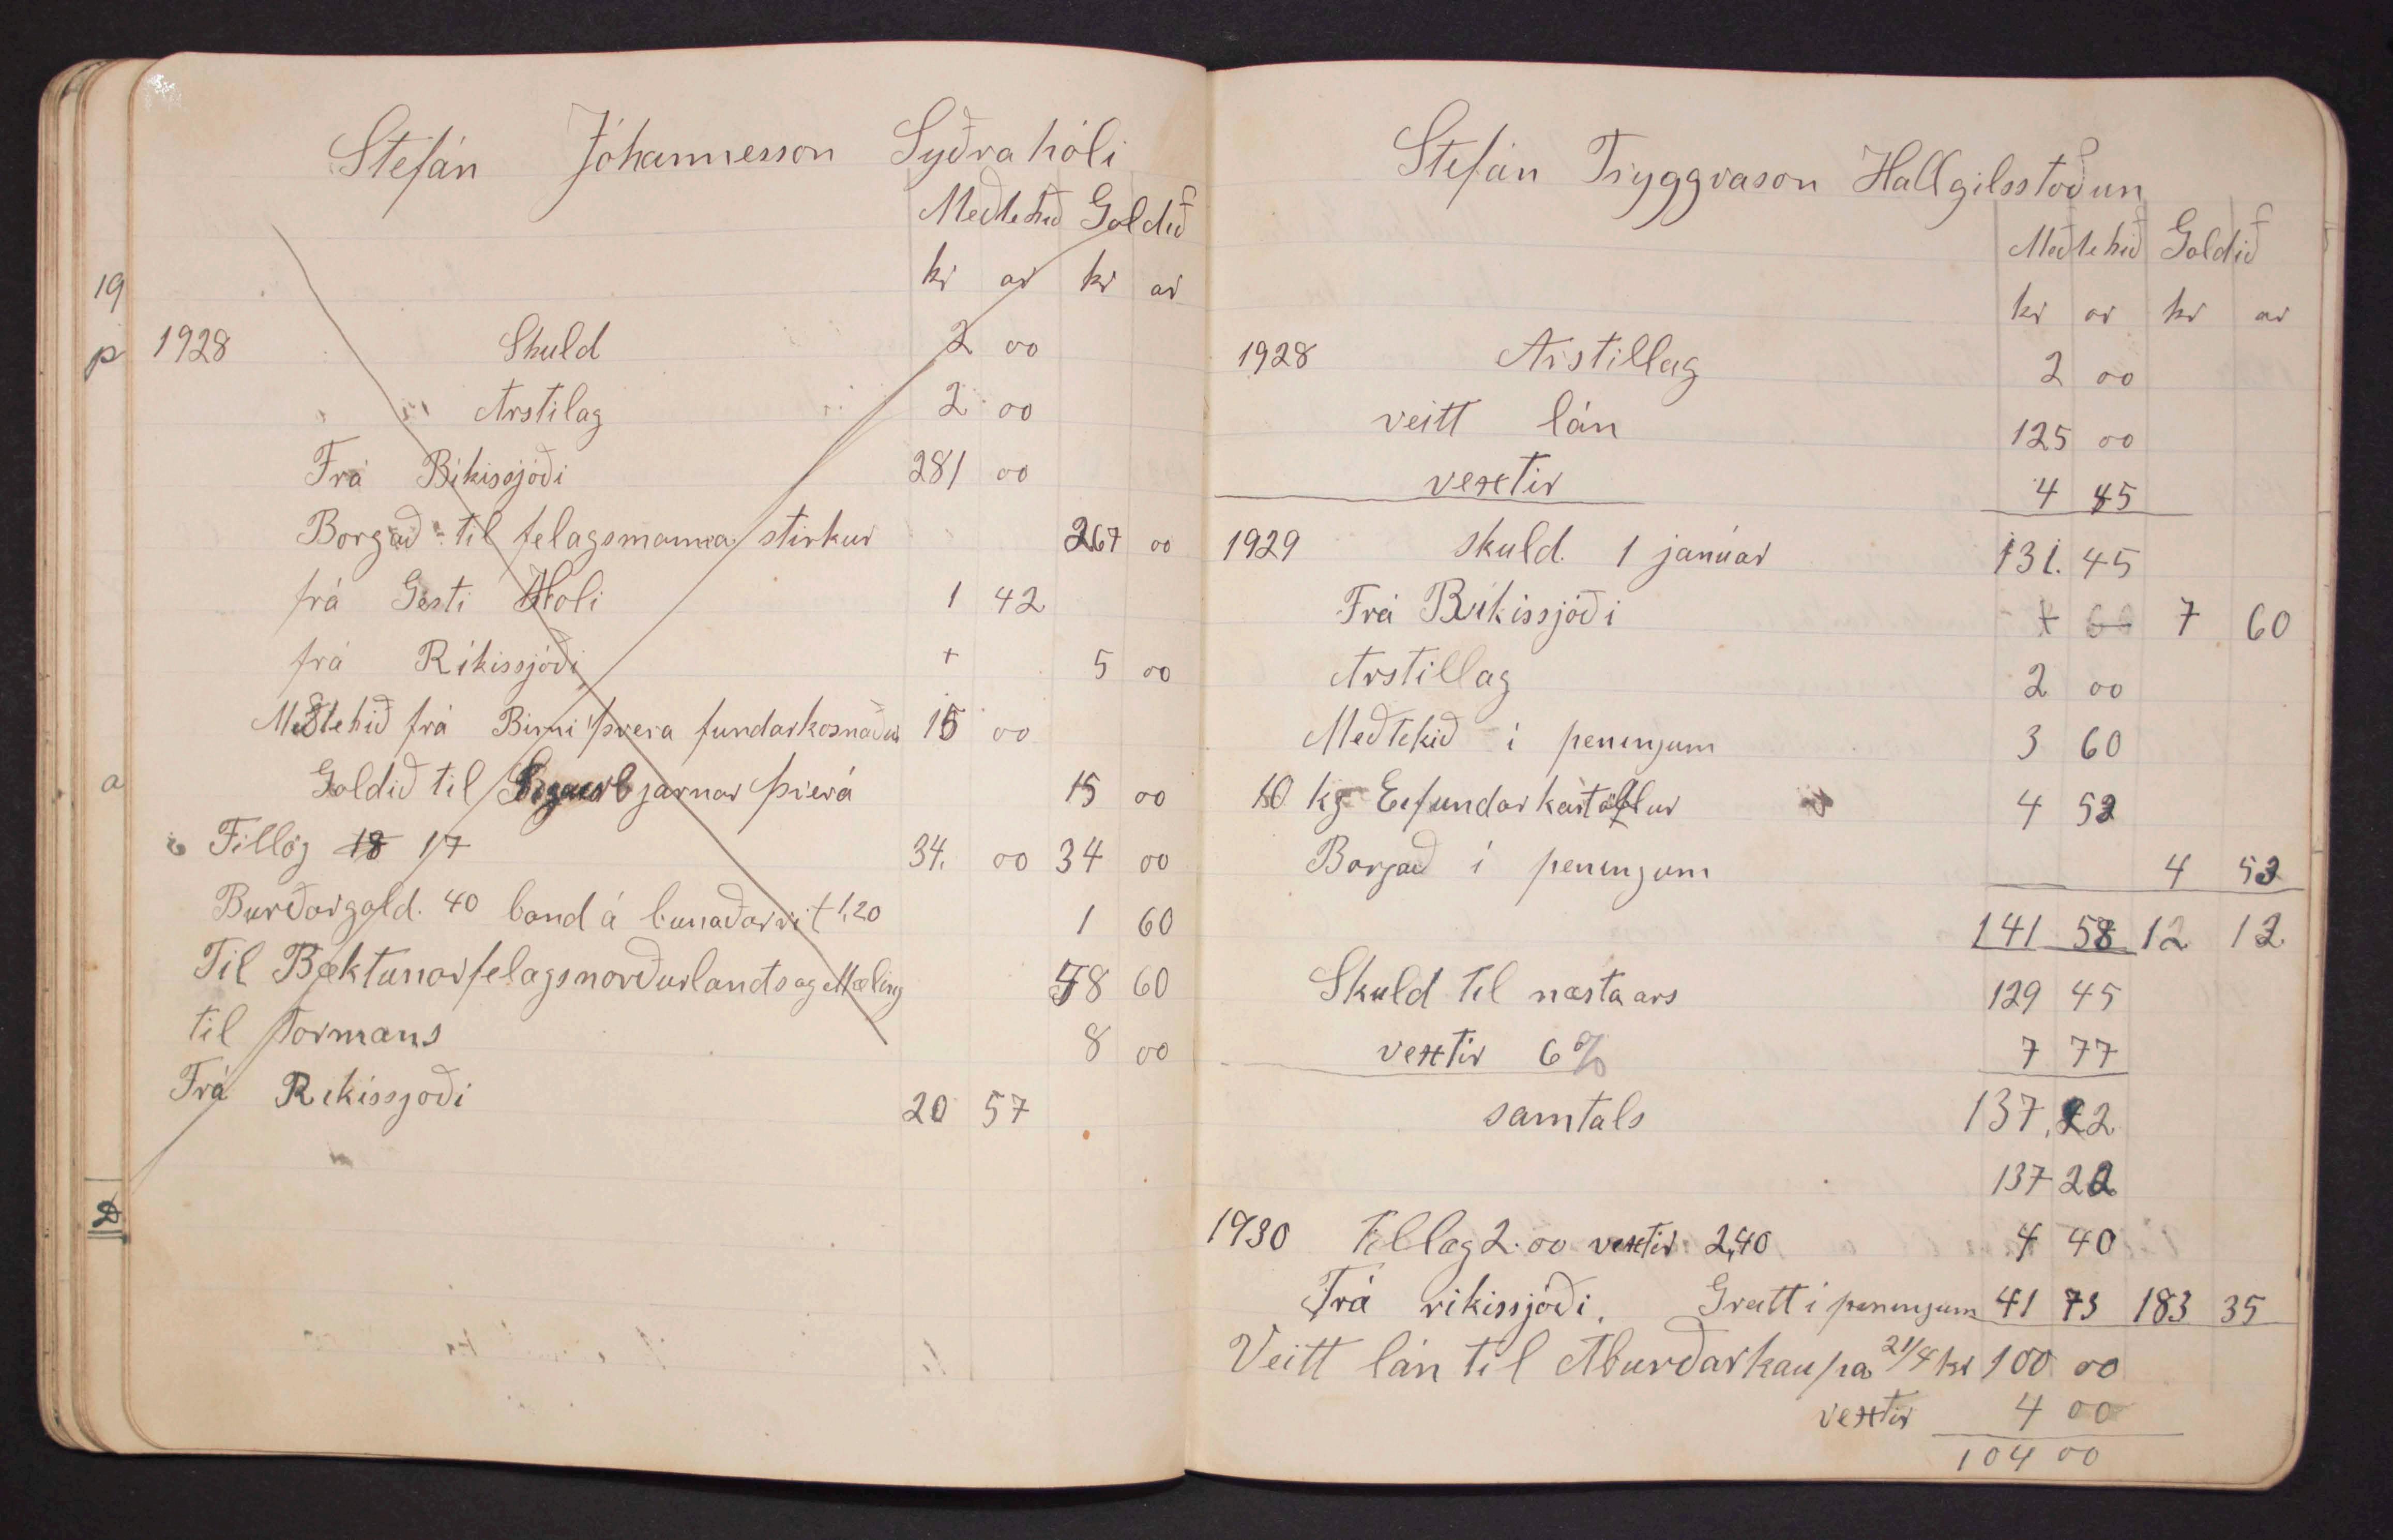 19
p
a
Stefán Jóhannesson Syðra hóli
Meðtekið Goldið
kr ar kr ar
1928 Skuld 2 00
" " Arstilag 2 00
Frá Ríkissjóði 281 00
Borgað til felagsmanna stirkur 267 00
frá Gesti Holi 1 42
frá Ríkissjóði + 5 00
Meðtekið frá Birni þvera fundarkosnaður 15 00
Goldið til Sigurbjarnar þverá 15 00
Tillög 18 17 34. 00 34 00
Burðargald. 40 band á bunaðarrit 1,20 1 60
Til Ræktunarfelagsnorðurlands og Mæling 58 60
til Formans 8 00
Frá Rikissjoði 20 57
Stefán Tryggvason Hallgilsstoðun
Meðtekið Goldið
kr ar kr ar
1928 Arstillag 2 00
veitt lán 125 00
vextir 4 45
1929 skuld. 1 janúar 131. 45
Frá Ríkissjóði 7 60 7 60
Arstillag 2 00
Meðtekið í peningum 3 60
10 kg Eyfundarkartöflur 4 53
Borgað í peningum 4 53
141 58 12 13
Skuld til næsta ars 129 45
vextir 6% 7 77
samtals 137,22
137 22
1930 Tillag 2.00 vextir 2,40 4 40
Frá rikissjóði. Greitt í peningum 41 73 183 35
Veitt lán til Aburðarkaupa 21/4 kr 100 00
vextir 4 00
104 00